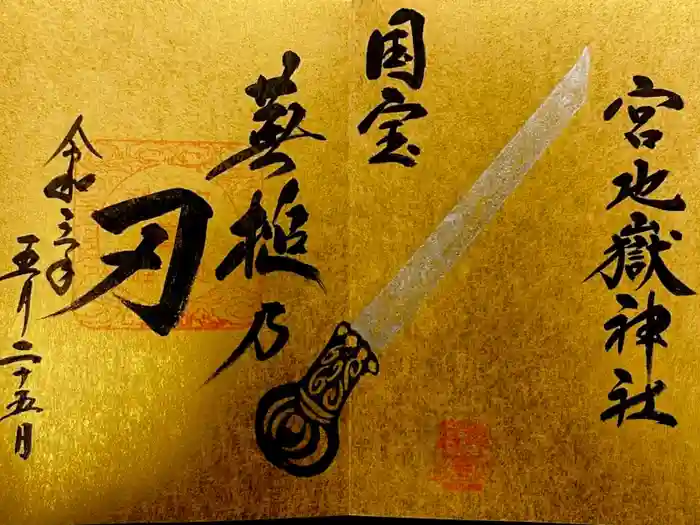 宮地嶽神社
国宝
蕪槌乃
刃
令和三年
五月二十五日